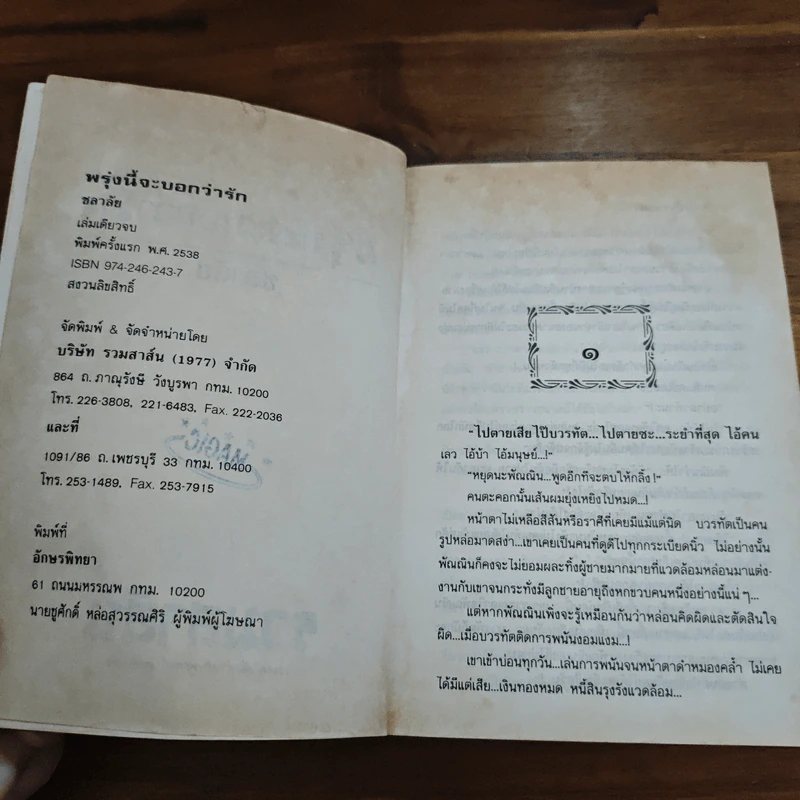 พรุ่งนี้จะบอกว่ารัก
ชลาลัย
เล่มเดียวจบ
พิมพ์ครั้งแรก พ.ศ. 2538
ISBN 974-246-243-7
สงวนลิขสิทธิ์
จัดพิมพ์ & จัดจำหน่ายโดย
บริษัท รวมสาส์น (1977) จำกัด
864 ถ.ภาณุรังษี วังบูรพา กทม. 10200
โทร. 226-3808, 221-6483, Fax. 222-2036
และที่
1091/86 ถ.เพชรบุรี 33 กทม. 10400
โทร. 253-1489, Fax. 253-7915
MAGIC
พิมพ์ที่
อักษรพิทยา
61 ถนนมหรรณพ กทม. 10200
นายชูศักดิ์ หล่อสุวรรณศิริ ผู้พิมพ์ผู้โฆษณา
๑
"ไปตายเสียไป๊บวรทัต...ไปตายซะ...ระยำที่สุด ไอ้คน
เลว ไอ้บ้า ไอ้มนุษย์...!"
"หยุดนะพัณณิน...พูดอีกทีจะตบให้กลิ้ง!"
คนตะคอกนั้นเส้นผมยุ่งเหยิงไปหมด...!
หน้าตาไม่เหลือสีสันหรือราศีที่เคยมีแม้แต่นิด บวรทัตเป็นคน
รูปหล่อมาดสง่า...เขาเคยเป็นคนที่ดูดีไปทุกกระเบียดนิ้ว ไม่อย่างนั้น
พัณณินก็คงจะไม่ยอมผละทิ้งผู้ชายมากมายที่แวดล้อมหล่อนมาแต่ง-
งานกับเขาจนกระทั่งมีลูกชายอายุถึงหกขวบคนหนึ่งอย่างนี้แน่ๆ...
แต่หากพัณณินเพิ่งจะรู้เหมือนกันว่าหล่อนคิดผิดและตัดสินใจ
ผิด...เมื่อบวรทัตติดการพนันงอมแงม...!
เขาเข้าบ่อนทุกวัน...เล่นการพนันจนหน้าตาดำหมองคล้ำ ไม่เคย
ได้มีแต่เสีย...เงินทองหมด หนี้สินรุงรังแวดล้อม...